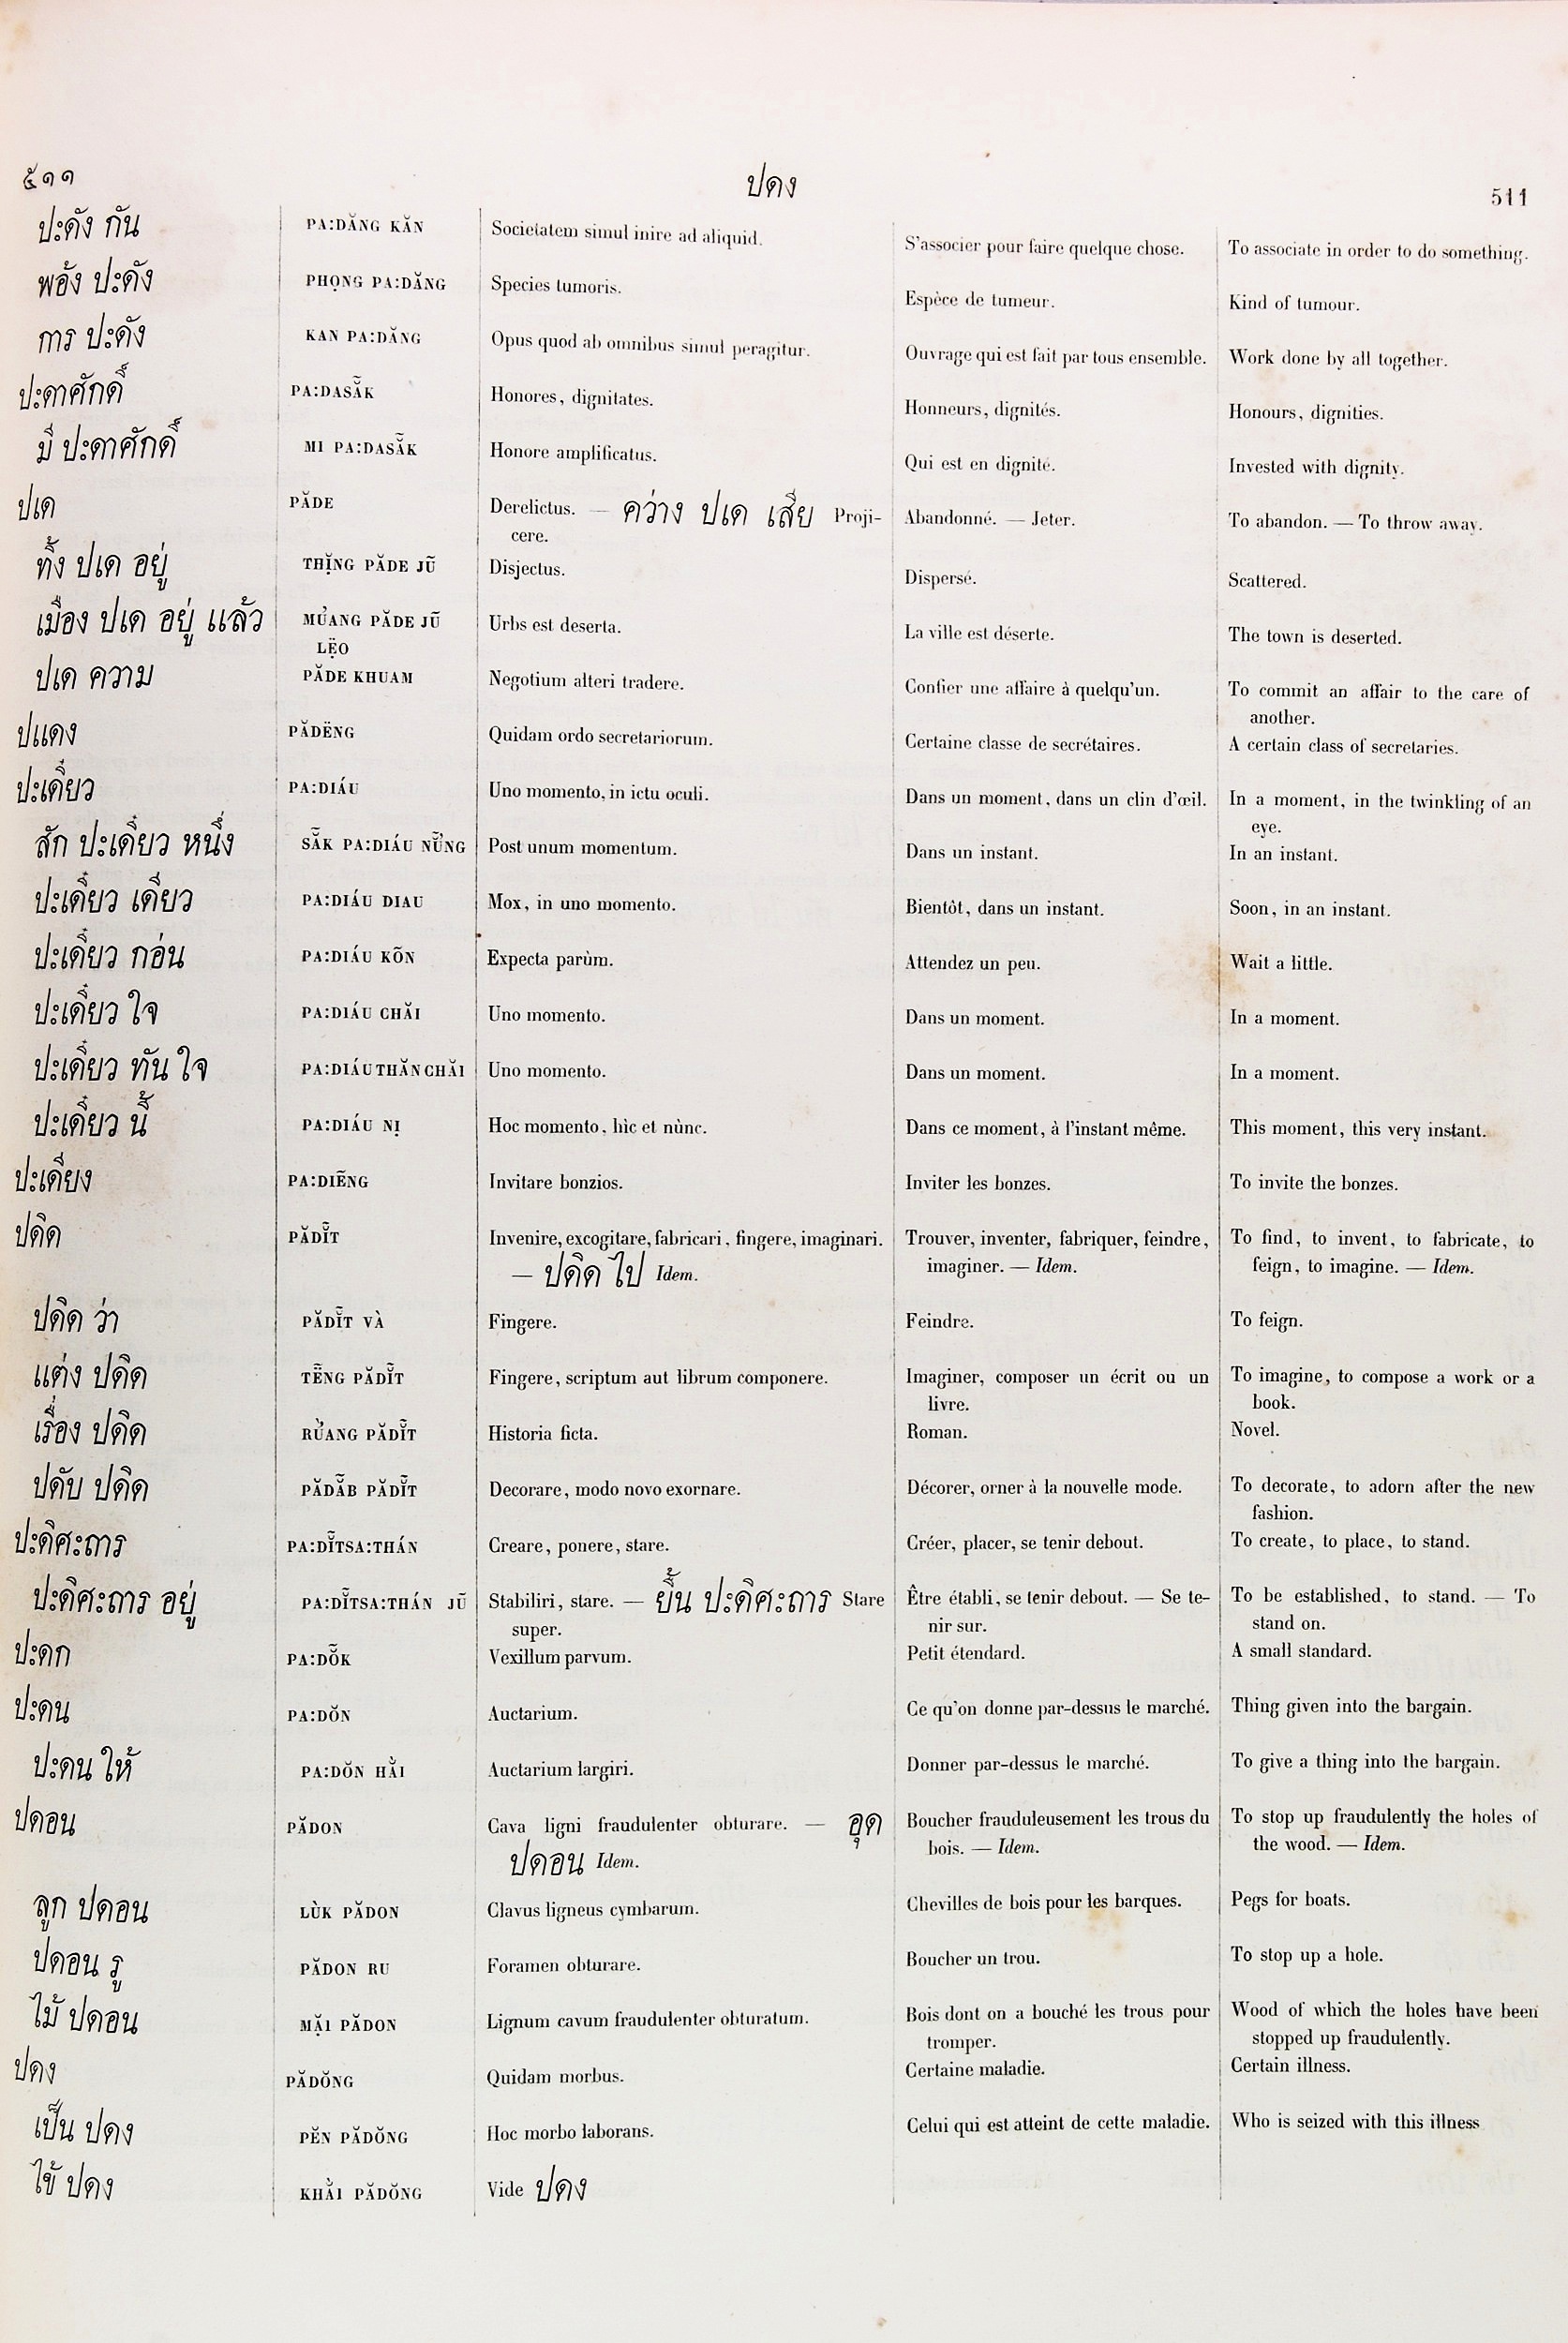 ๕๑๑ ปดง 511
ปะดัง กัน PA:DĂNG KĂN Societatem simul inire ad aliquid. S'associer pour faire quelque chose. To associate in order to do something.
พอ้ง ปะดัง PHỌNG PA:DĂNG Species tumoris. Espèce de tumeur. Kind of tumour.
การ ปะดัง KAN PA:DĂNG Opus quod ab omnibus simul peragitur. Ouvrage qui est fait par tous ensemble. Work done by all together.
ปะดาศักดิ์ PA:DASẮK Honores, dignitates. Honneurs, dignités. Honours, dignities.
มี ปะดาศักดิ์ MI PA:DASẮK Honore amplificatus. Qui est en dignité. Invested with dignity.
ปเด PĂDE Derelictus. — คว่าง ปเด เสีย Proji- Abandonné. — Jeter. To abandon. — To throw away.
cere.
ทิ้ง ปเด อยู่ THỊNG PĂDE JŨ Disjectus. Dispersé. Scattered.
เมือง ปเด อยู่ แล้ว MU̓ANG PĂDE JŨ Urbs est deserta. La ville est déserte. The town is deserted.
LẸ̈O
ปเด ความ PĂDE KHUAM Negotium alteri tradere. Confier une affaire à quelqu'un. To commit an affair to the care of
another.
ปแดง PĂDËNG Quidam ordo secretariorum. Certaine classe de secrétaires. A certain class of secretaries.
ปะเดี๋ยว PA:DIÁU Uno momento, in ictu oculi. Dans un moment, dans un clin d'œil. In a moment, in the twinkling of an
eye.
สัก ปะเดี๋ยว หนึ่ง SẴK PA:DIÁU NŬ̓̃NG Post unum momentum. Dans un instant. In an instant.
ปะเดี๋ยว เดียว PA:DIÁU DIAU Mox, in uno momento. Bientôt, dans un instant. Soon, in an instant.
ปะเดี๋ยว กอ่น PA:DIÁU KÕN Expecta parùm. Attendez un peu. Wait a little.
ปะเดี๋ยว ใจ PA:DIÁU CHĂI Uno momento. Dans un moment. In a moment.
ปะเดี๋ยว ทัน ใจ PA:DIÁU THĂN CHĂI Uno momento. Dans un moment. In a moment.
ปะเดี๋ยว นี้ PA:DIÁU NỊ Hoc momento, hìc et nùnc. Dans ce moment, à l'instant même. This moment, this very instant.
ปะเดียง PA:DIẼNG Invitare bonzios. Inviter les bonzes. To invite the bonzes.
ปดิด PĂDĬ̃T Invenire, excogitare, fabricari, fingere, imaginari. Trouver, inventer, fabriquer, feindre, To find, to invent, to fabricate, to
— ปดิด ไป Idem. imaginer. — Idem. feign, to imagine. — Idem.
ปดิด ว่า PĂDĬ̃T VÀ Fingere. Feindre. To feign.
แต่ง ปดิด TË̃NG PĂDĬ̃T Fingere, scriptum aut librum componere. Imaginer, composer un écrit ou un To imagine, to compose a work or a
livre. book.
เรื่อง ปดิด RU̓̀ANG PĂDĬ̃T Historia ficta. Roman. Novel.
ปดับ ปดิด PĂDẴB PĂDĬ̃T Decorare, modo novo exornare. Décorer, orner à la nouvelle mode. To decorate, to adorn after the new
fashion.
ปะดิศะถาร PA:DĬ̃TSA:THÁN Creare, ponere, stare. Créer, placer, se tenir debout. To create, to place, to stand.
ปะดิศะถาร อยู่ PA:DĬ̃TSA:THÁN JŨ Stabiliri, stare. — ยืน ปะดิศะถาร Stare Être établi, se tenir debout. — Se te- To be established, to stand. — To
super. nir sur. stand on.
ปะดก PA:DŎ̃K Vexillum parvum. Petit étendard. A small standard.
ปะดน PA:DŎN Auctarium. Ce qu'on donne par-dessus le marché. Thing given into the bargain.
ปะดน ให้ PA:DŎN HẰI Auctarium largiri. Donner par-dessus le marché. To give a thing into the bargain.
ปดอน PĂDON Cava ligni fraudulenter obturare. — อุด Boucher frauduleusement les trous du To stop up fraudulently the holes of
ปดอน Idem. bois. — Idem. the wood. — Idem.
ลูก ปดอน LÙK PĂDON Clavus ligneus cymbarum. Chevilles de bois pour les barques. Pegs for boats.
ปดอน รู PĂDON RU Foramen obturare. Boucher un trou. To stop up a hole.
ไม้ ปดอน MẶI PĂDON Lignum cavum fraudulenter obturatum. Bois dont on a bouché les trous pour Wood of which the holes have been
tromper. stopped up fraudulently.
ปดง PĂDŎNG Quidam morbus. Certaine maladie. Certain illness.
เป็น ปดง PĔN PĂDŎNG Hoc morbo laborans. Celui qui est atteint de cette maladie. Who is seized with this illness
ไข้ ปดง KHẰI PĂDŎNG Vide ปดง